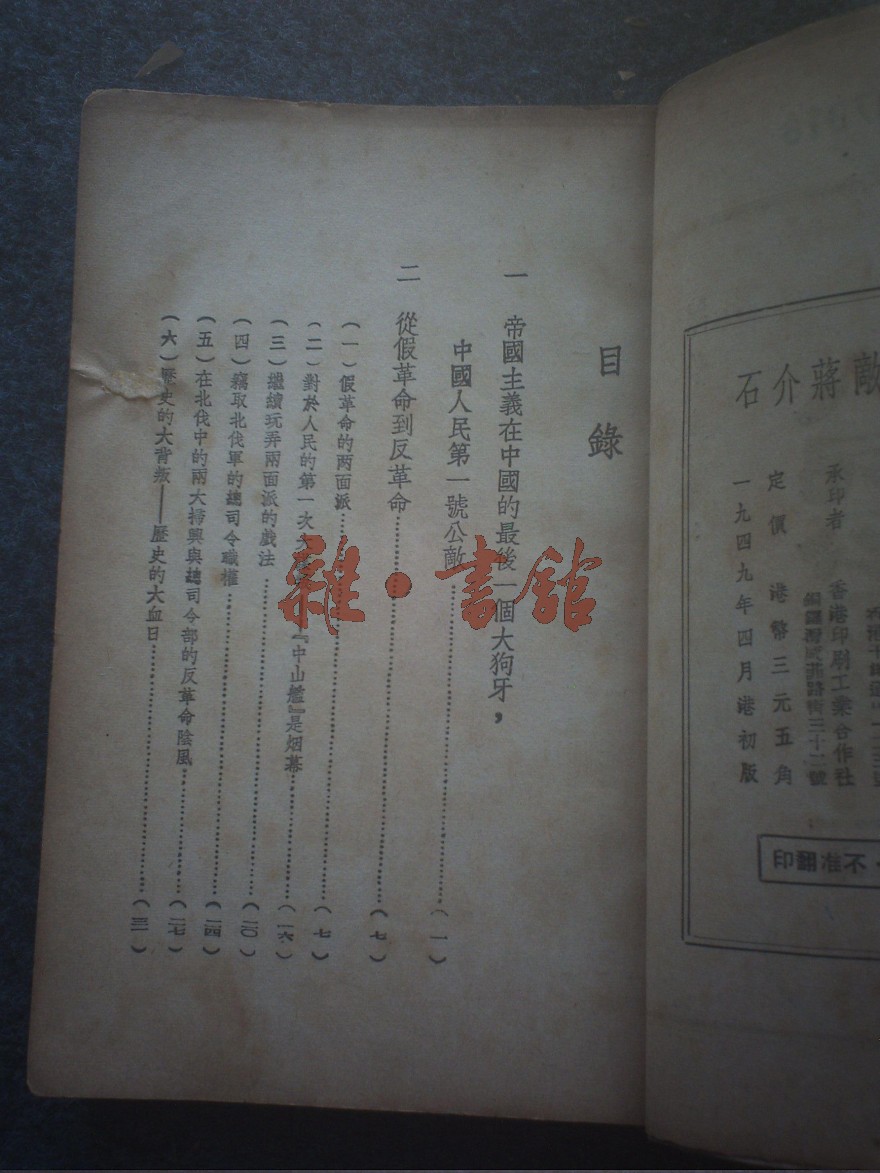 敵蔣介石
承印者 香港印刷工業合作社
定價 港幣三元五角
一九四九年四月港初版
不准翻印
目錄
一 帝國主義在中國的最後一個大狗牙，
中國人民第一號公敵……(一)
二 從假革命到反革命……(七)
(一)假革命的两面派……(七)
(二)對於人民的第一次大 『中山艦』是烟幕……(一六)
(三)繼續玩弄兩面派的戲法……(二〇)
(四)竊取北伐軍的總司令職權……(二四)
(五)在北伐中的兩大掃興與總司令部的反革命陰風……(二七)
(六)歷史的大背叛——歷史的大血日……(三一)
雜·書館